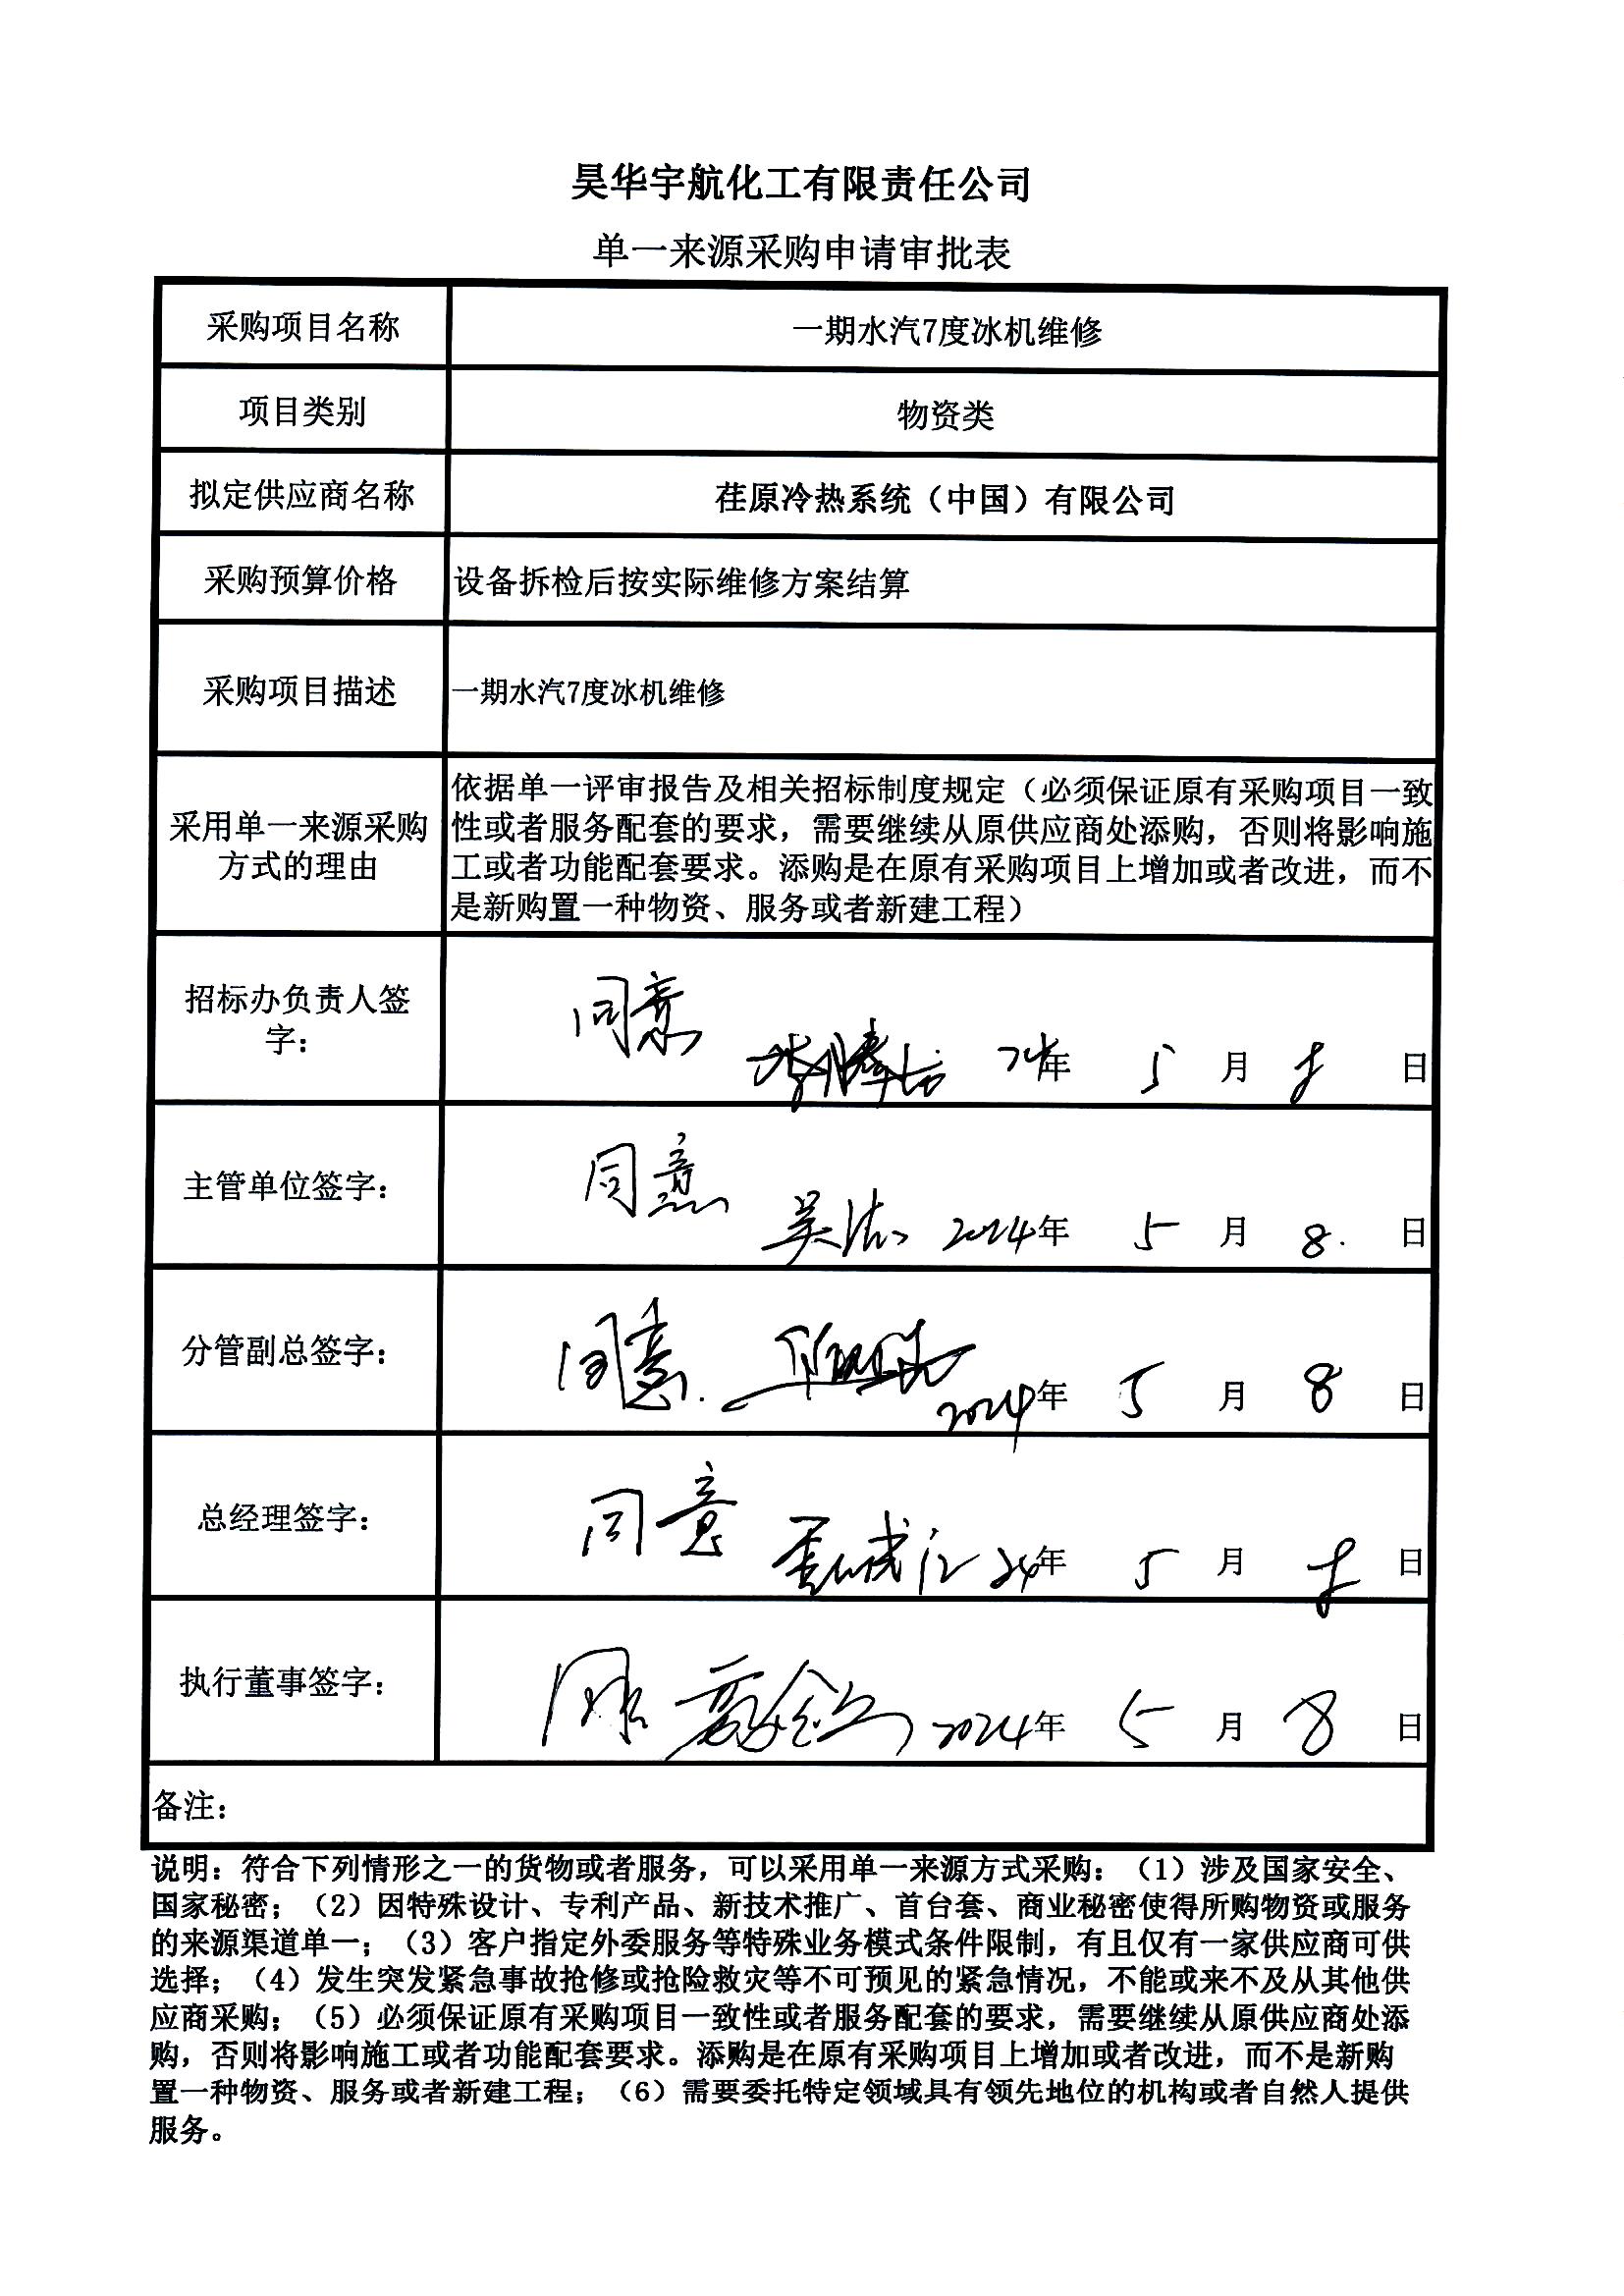 昊华宇航化工有限责任公司
单一来源采购申请审批表
采购项目名称
一期水汽7度冰机维修
项目类别
物资类
拟定供应商名称
荏原冷热系统（中国）有限公司
采购预算价格
设备拆检后按实际维修方案结算
采购项目描述
一期水汽7度冰机维修
采用单一来源采购
方式的理由
依据单一评审报告及相关招标制度规定（必须保证原有采购项目一致
性或者服务配套的要求，需要继续从原供应商处添购，否则将影响施
工或者功能配套要求。添购是在原有采购项目上增加或者改进，而不
是新购置一种物资、服务或者新建工程）
招标办负责人签
字：
同意
24年 5 月 8 日
主管单位签字：
同意
吴 2024年 5 月 8. 日
分管副总签字：
同意.
2024年 5 月 8 日
总经理签字：
同意
24年 5 月 8 日
执行董事签字：
同意
2024年 5 月 8 日
备注：
说明：符合下列情形之一的货物或者服务，可以采用单一来源方式采购：（1）涉及国家安全、
国家秘密；（2）因特殊设计、专利产品、新技术推广、首台套、商业秘密使得所购物资或服务
的来源渠道单一；（3）客户指定外委服务等特殊业务模式条件限制，有且仅有一家供应商可供
选择；（4）发生突发紧急事故抢修或抢险救灾等不可预见的紧急情况，不能或来不及从其他供
应商采购；（5）必须保证原有采购项目一致性或者服务配套的要求，需要继续从原供应商处添
购，否则将影响施工或者功能配套要求。添购是在原有采购项目上增加或者改进，而不是新购
置一种物资、服务或者新建工程；（6）需要委托特定领域具有领先地位的机构或者自然人提供
服务。